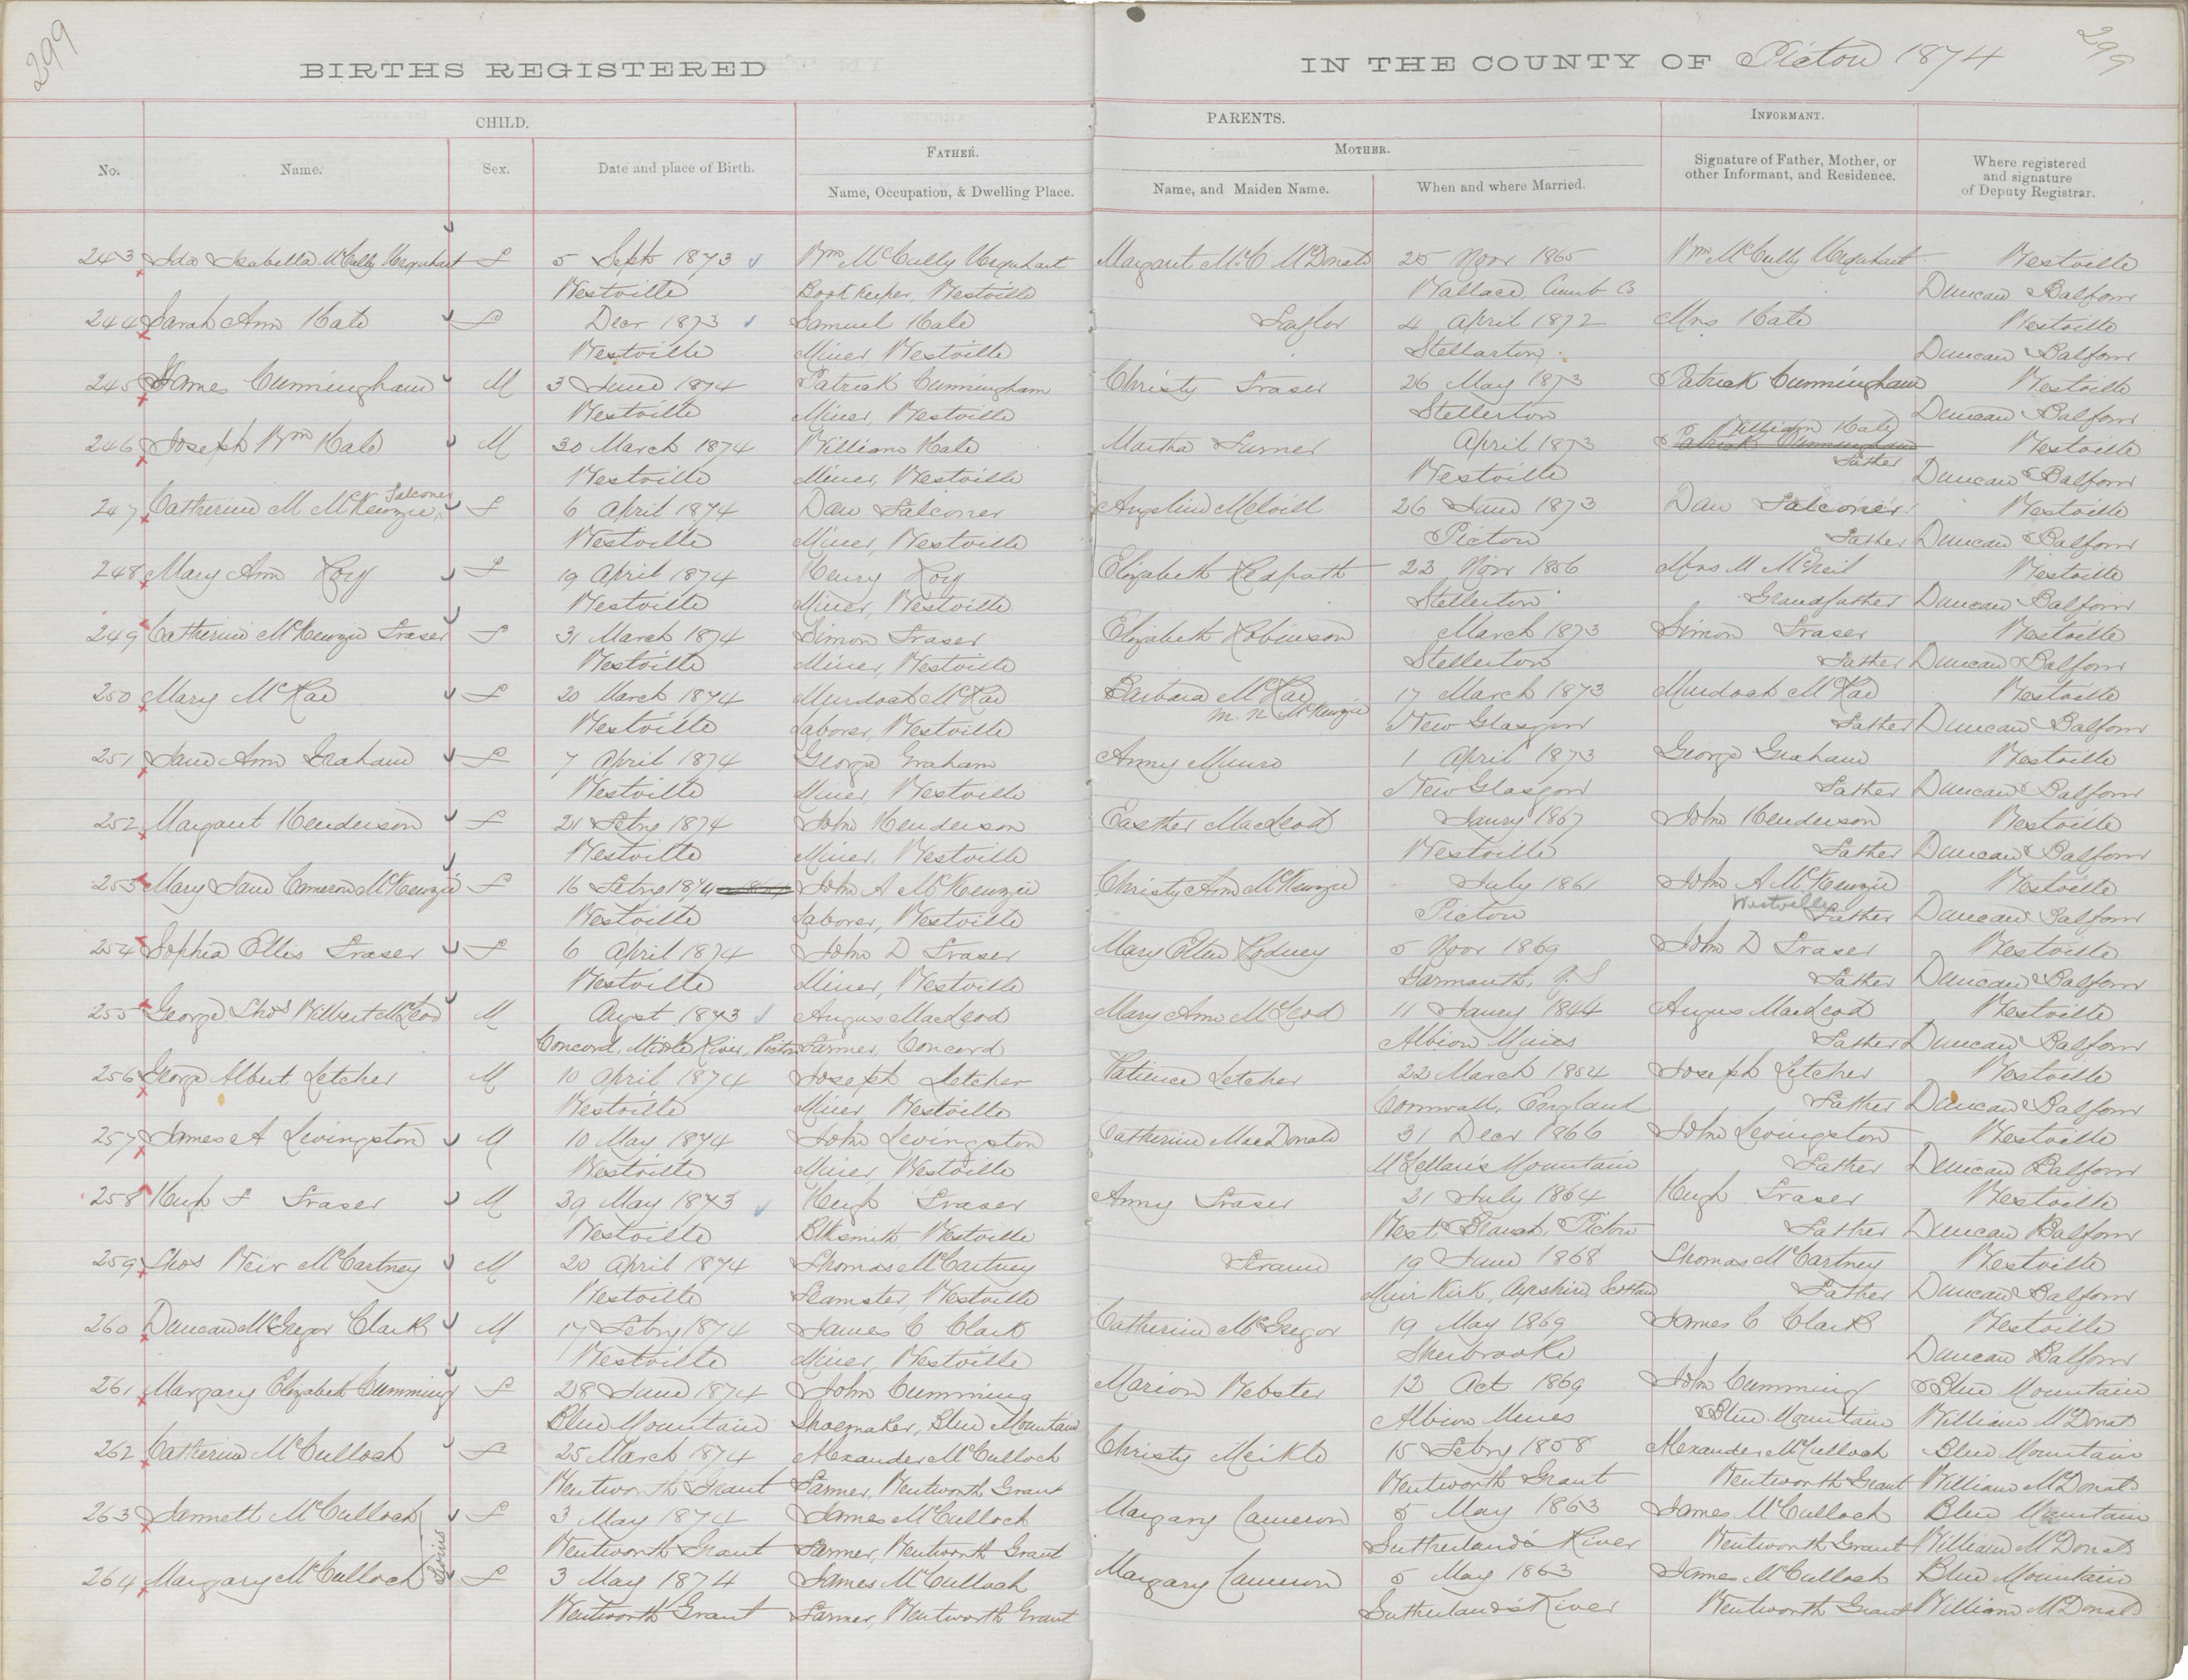 299
299
BIRTHS REGISTERED IN THE COUNTY OF Pictou 1874
CHILD. PARENTS. INFORMANT.
No. Name. Sex. Date and place of Birth. FATHER. Name, Occupation, & Dwelling Place. MOTHER. Name, and Maiden Name. When and where Married. Signature of Father, Mother, or other Informant, and Residence. Where registered and signature of Deputy Registrar.
243 Ida Isabella McCully Urquhart F 5 Sept 1873 Wm McCully Urquhart Margaret McC McDonald 25 Novr 1865 Wm McCully Urquhart Westville
Westville Book Keeper, Westville Wallace, Cumb Co Duncan Balfour
244 Sarah Ann Hale F Decr 1873 Samuel Hale Taylor 4 April 1872 Mrs Hale Westville
Westville Miner Westville Stellarton Duncan Balfour
245 James Cunningham M 3 June 1874 Patrick Cunningham Christy Fraser 26 May 1873 Patrick Cunningham Westville
Westville Miner, Westville Stellerton Duncan Balfour
246 Joseph Wm Hale M 30 March 1874 William Hale Martha Turner April 1873 William Hale Westville
Westville Miner, Westville Westville Father Duncan Balfour
247 Catherine M McKenzie Falconer F 6 April 1874 Dan Falconer Angeline Melvill 26 June 1873 Dan Falconer Westville
Westville Miner, Westville Pictou Father Duncan Balfour
248 Mary Ann Roy F 19 April 1874 Henry Roy Elizabeth Redpath 23 Novr 1856 Mrs M McNeil Westville
Westville Miner, Westville Stellerton Grandfather Duncan Balfour
249 Catherine McKenzie Fraser F 31 March 1874 Simon Fraser Elizabeth Robinson March 1873 Simon Fraser Westville
Westville Miner, Westville Stellerton Father Duncan Balfour
250 Mary McRae F 20 March 1874 Murdoch McRae Barbara McRae 17 March 1873 Murdoch McRae Westville
Westville Laborer, Westville m. n McKenzie New Glasgow Father Duncan Balfour
251 Jane Ann Graham F 7 April 1874 George Graham Anny Munro 1 April 1873 George Graham Westville
Westville Miner, Westville New Glasgow Father Duncan Balfour
252 Margaret Henderson F 21 Febry 1874 John Henderson Easther MacLeod Janry 1867 John Henderson Westville
Westville Miner, Westville Westville Father Duncan Balfour
253 Mary Jane Cameron McKenzie F 16 Febry 1874 John A McKenzie Christy Ann McKenzie July 1861 John A McKenzie Westville
Westville Laborer, Westville Pictou Westville Father Duncan Balfour
254 Sophia Ellis Fraser F 6 April 1874 John D Fraser Mary Ellen Rodney 5 Novr 1869 John D Fraser Westville
Westville Miner, Westville Yarmouth, N.S Father Duncan Balfour
255 George Thos Wilbert McLeod M Augst 1873 Angus MacLeod Mary Ann McLeod 11 Janry 1844 Angus MacLeod Westville
Concord, Middle River, Pictou Farmer, Concord Albion Mines Father Duncan Balfour
256 George Albert Letcher M 10 April 1874 Joseph Letcher Patience Letcher 22 March 1854 Joseph Letcher Westville
Westville Miner Westville Cornwall, England Father Duncan Balfour
257 James A Levingston M 10 May 1874 John Levingston Catherine MacDonald 31 Decr 1866 John Levingston Westville
Westville Miner Westville McLellan's Mountain Father Duncan Balfour
258 Hugh F Fraser M 29 May 1873 Hugh Fraser Anny Fraser 21 July 1864 Hugh Fraser Westville
Westville Blksmith Westville West Branch, Pictou Father Duncan Balfour
259 Thos Weir McCartney M 20 April 1874 Thomas McCartney 19 June 1868 Thomas McCartney Westville
Westville Teamster, Westville Muir Kirk, Ayrshire, Scotland Father Duncan Balfour
260 Duncan McGregor Clark M 17 Febry 1874 James C Clark Catherine McGregor 19 May 1869 James C Clark Westville
Westville Miner, Westville Sherbrooke Duncan Balfour
261 Margary Elizabeth Cumming F 28 June 1874 John Cumming Marion Webster 12 Oct 1869 John Cumming Blue Mountain
Blue Mountain Shoemaker, Blue Mountain Albion Mines Blue Mountain William McDonald
262 Catherine McCulloch F 25 March 1874 Alexander McCulloch Christy Meikle 15 Febry 1858 Alexander McCulloch Blue Mountain
Wentworth Grant Farmer, Wentworth Grant Wentworth Grant Wentworth Grant William McDonald
263 Jannett McCulloch F 3 May 1874 James McCulloch Margary Cameron 5 May 1863 James McCulloch Blue Mountain
Twins Wentworth Grant Farmer, Wentworth Grant Sutherland's River Wentworth Grant William McDonald
264 Margary McCulloch F 3 May 1874 James McCulloch Margary Cameron 5 May 1863 James McCulloch Blue Mountain
Wentworth Grant Farmer, Wentworth Grant Sutherland's River Wentworth Grant William McDonald